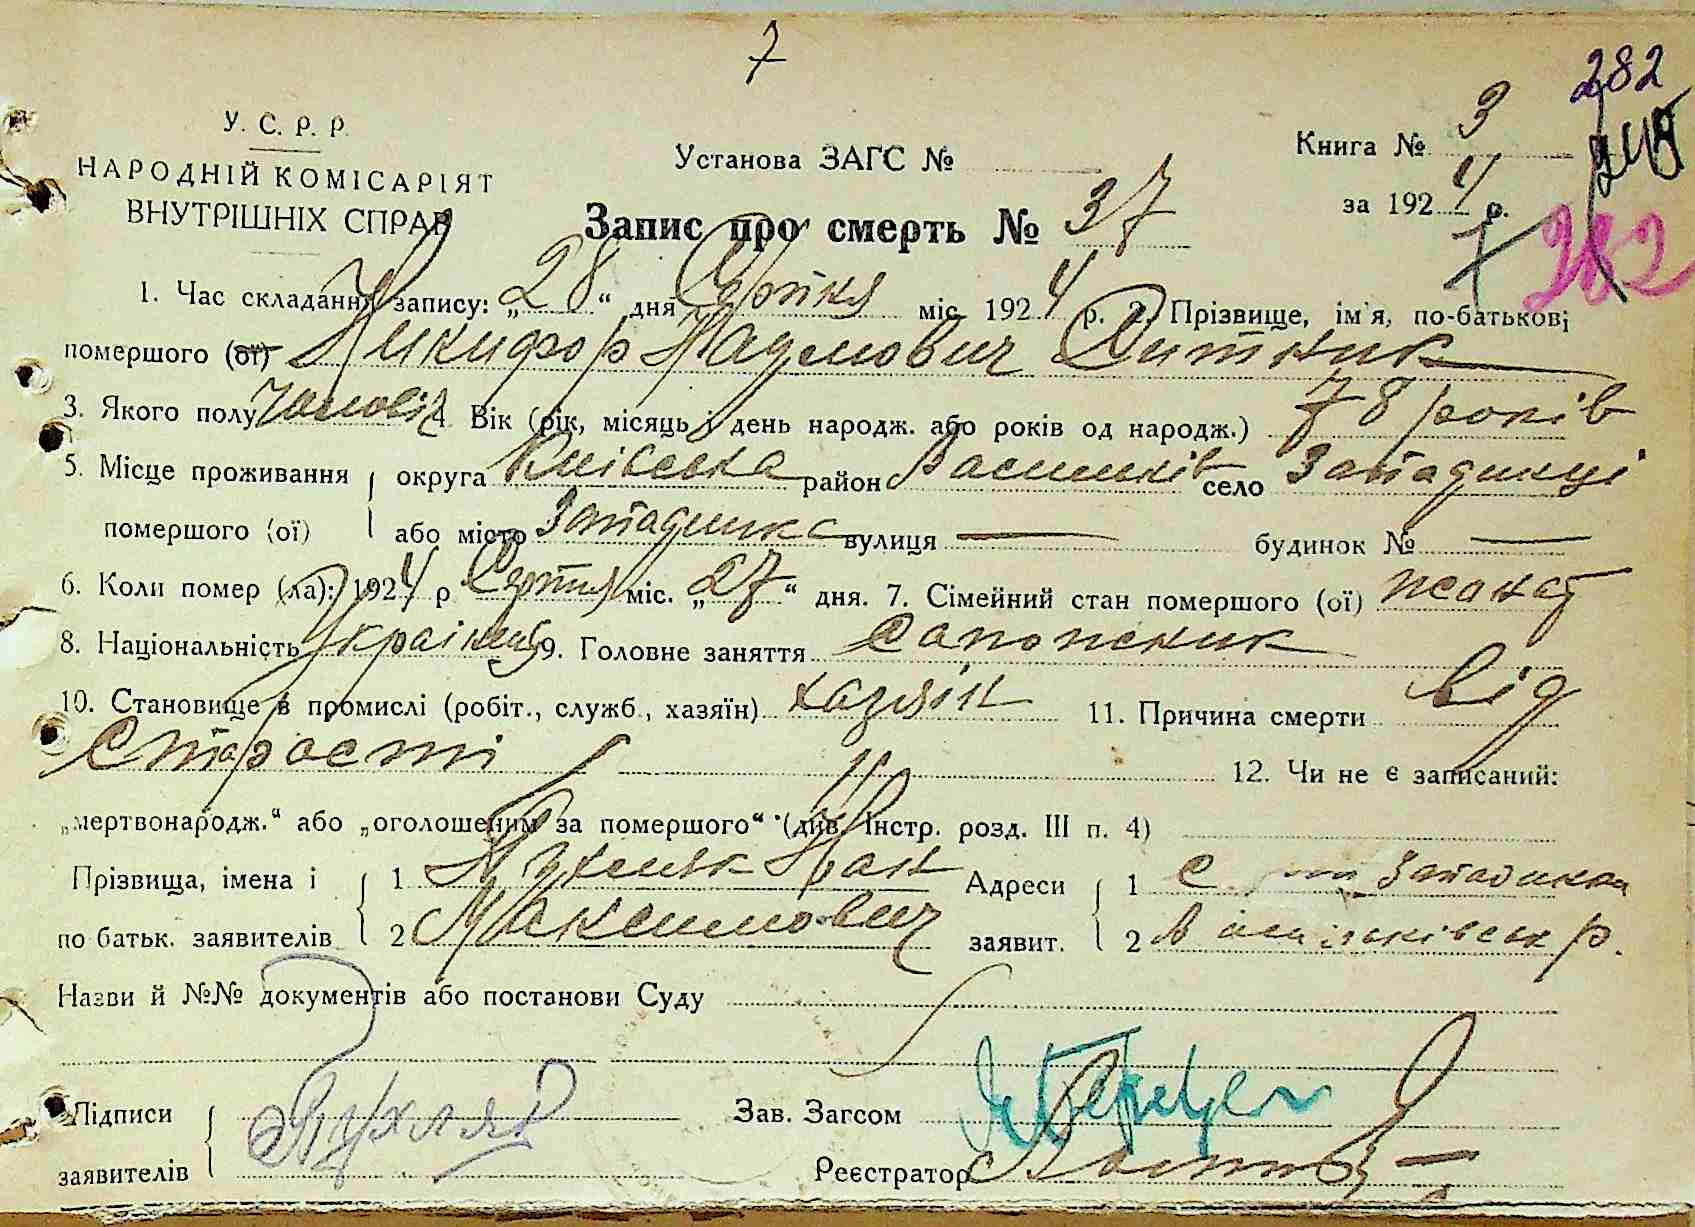 7
282
У. С. Р. Р.
НАРОДНІЙ КОМІСАРІЯТ
ВНУТРІШНІХ СПРАВ
Установа ЗАГС №
Книга № 3
за 1924 р.
282
Запис про смерть № 37
1. Час складання запису: „28“ дня Серпня міс. 1924 р. 2. Прізвище, ім'я, по-батькові
помершого (ої) Никифор Наумович Ситник
3. Якого полу чоловіч 4. Вік (рік, місяць і день народж. або років од народж.) 78 років
5. Місце проживання округа Київська район Васильків село Западинці
помершого (ої) або місто Западинка вулиця — будинок № —
6. Коли помер (ла): 1924 р. Серпня міс. „27“ дня. 7. Сімейний стан помершого (ої) жонат
8. Національність Українец 9. Головне заняття
10. Становище в промислі (робіт., служб., хазяїн) хазяїн 11. Причина смерти Від
старости 12. Чи не є записаний:
„мертвонародж.“ або „оголошеним за помершого“ (див. Інстр. розд. III п. 4)
Прізвища, імена і 1 Адреси 1 с.
по батьк. заявителів 2 Максимович заявит. 2 Васильківськ р.
Назви й №№ документів або постанови Суду
Підписи Зав. Загсом
заявителів Реєстратор